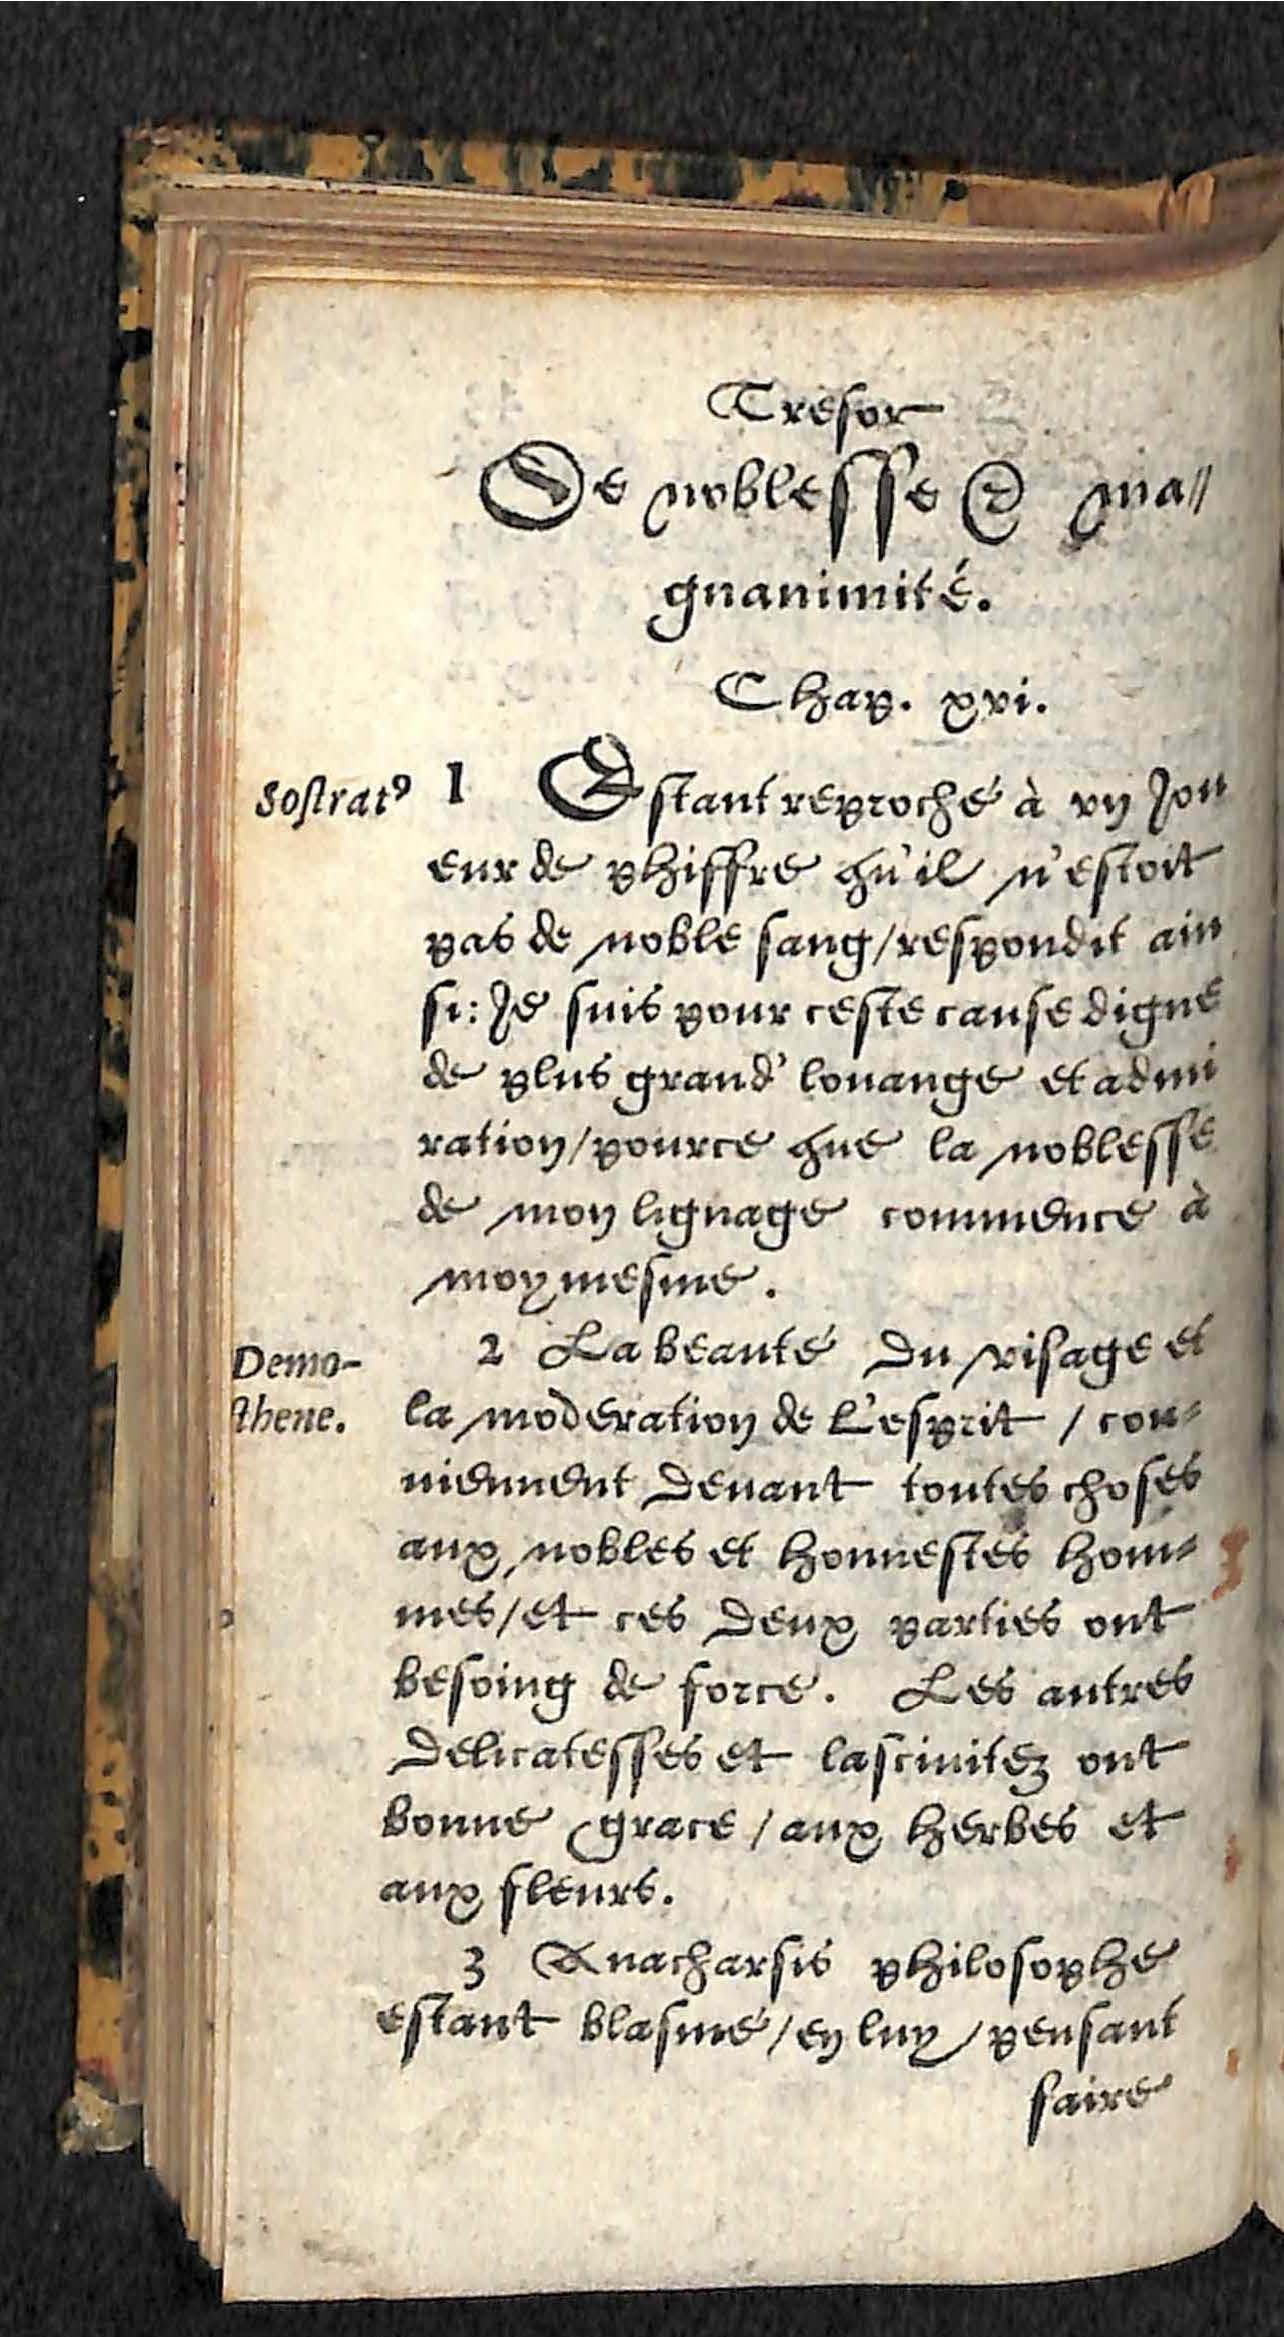 Tresor
De noblesse & ma⸗
gnanimité.
Chap. xvi.
Sostratꝰ 1 Estant reproché à vn Jou
eur de phiffre qu'il n'estoit
pas de noble sang/respondit ain
si: Je suis pour ceste cause digne
de plus grand' louange et admi
ration/pource que la noblesse
de mon lignage commence à
moymesme.
Demo- 2 La beauté du visage et
sthene. la moderation de l'esprit / con⸗
uiennent deuant toutes choses
aux nobles et honnestes hom⸗
mes/et ces deux parties ont
besoing de force. Les autres
delicatesses et lasciuitez ont
bonne grace / aux herbes et
aux fleurs.
3 Anacharsis philosophe
estant blasmé/en luy pensant
faire